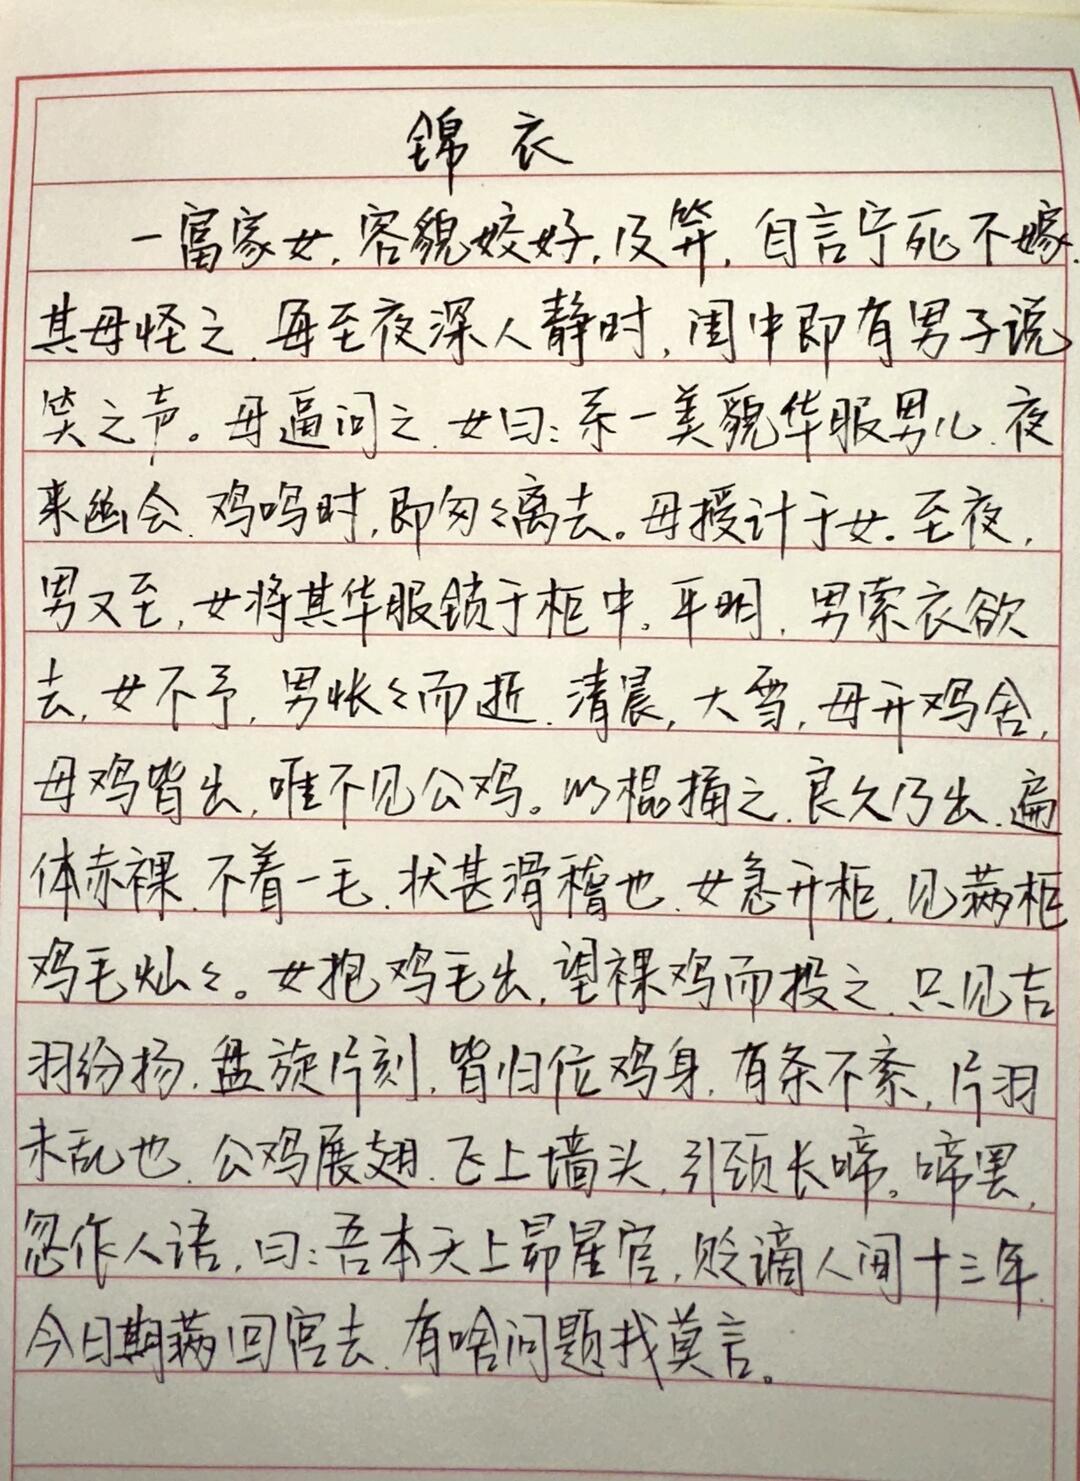 锦衣
一富家女,容貌姣好,及笄,自言宁死不嫁.
其母怪之.每至夜深人静时,闺中即有男子说
笑之声。母逼问之.女曰:系一美貌华服男儿.夜
来幽会.鸡鸣时,即匆々离去。母授计于女。至夜,
男又至,女将其华服锁于柜中。平明,男索衣欲
去,女不予,男怅々而逝.清晨,大雪,母开鸡舍,
母鸡皆出,唯不见公鸡。以棍捅之.良久乃出.遍
体赤裸.不着一毛.状甚滑稽也.女急开柜,见满柜
鸡毛灿々。女抱鸡毛出,望裸鸡而投之.只见吉
羽纷扬.盘旋片刻,皆归位鸡身.有条不紊,片羽
未乱也.公鸡展翅.飞上墙头,引颈长啼。啼罢,
忽作人语,曰:吾本天上昴星官,贬谪人间十三年.
今日期满回宫去.有啥问题找莫言。